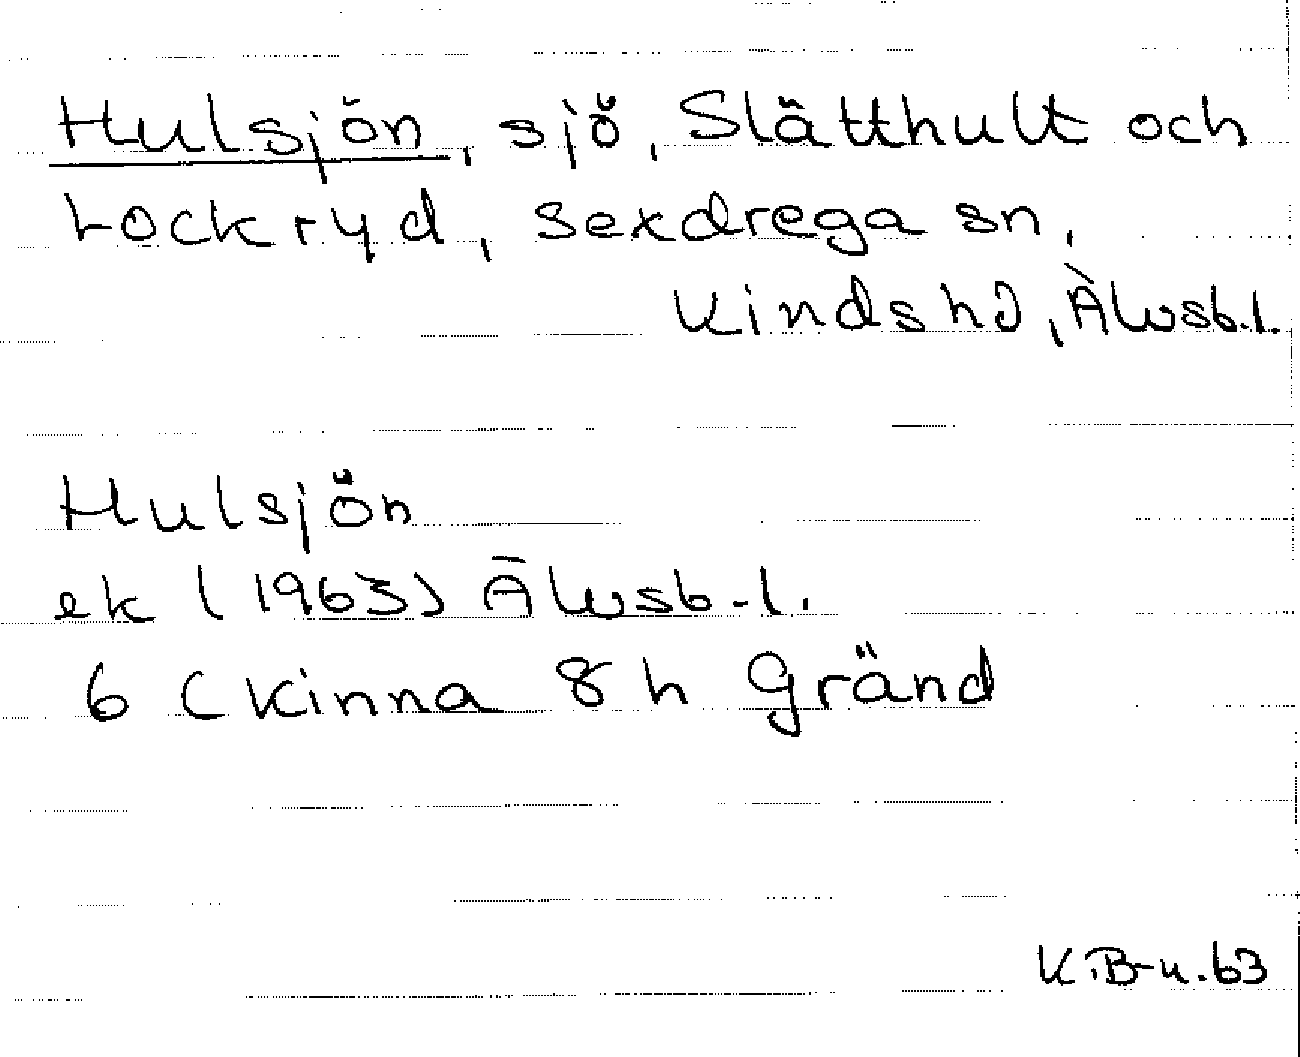 Hulsjön, sjö, Slätthult och
Lockryd, Sexdrega sn,
Kinds hd, Älvsb.l.
Hulsjön
ek (1963) Älvsb.l.
6 C Kinna 8 h Gränd
K.B-n.63